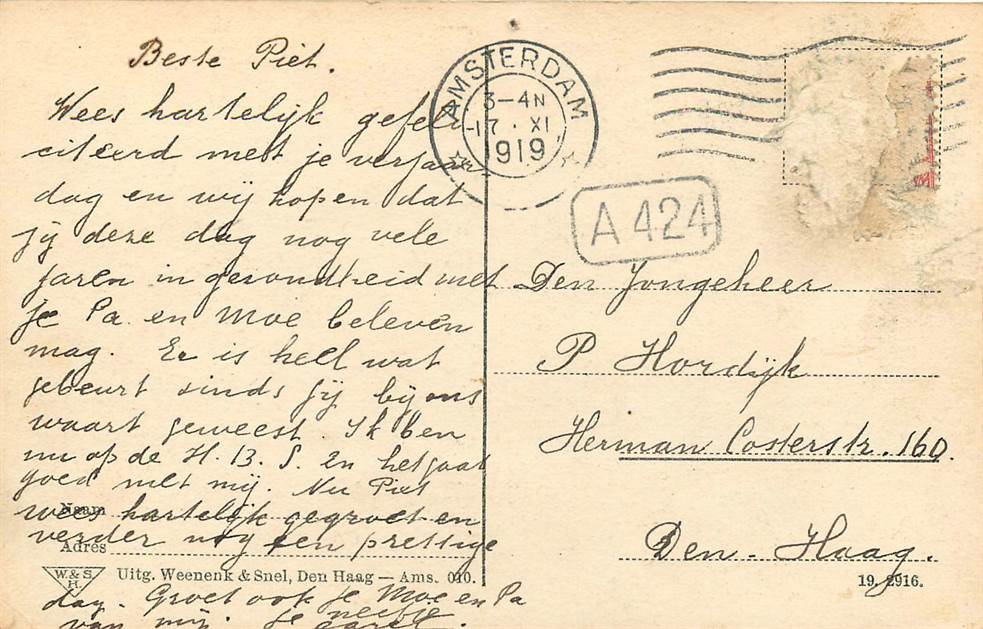 Beste Piet.
Wees hartelijk gefeli
citeerd met je verjaar
dag en wij hopen dat
jij deze dag nog vele
jaren in gezondheid met
je Pa en Moe beleven
mag. Er is heel wat
gebeurt sinds jij bij ons
waart geweest. Ik ben
nu op de H. B. S. en het gaat
goed met mij. Nu Piet
wees hartelijk gegroet en
verder nog een prettige
dag. Groet ook je Moe en Pa
van mij. Je neefje
Carel.
Naam
Adres
W. & S.
H.
Uitg. Weenenk & Snel, Den Haag — Ams. 010.
AMSTERDAM
3-4N
17. XI
1919
A 424
Den Jongeheer
P Hordijk
Herman Costerstr. 160.
Den-Haag.
19. 2916.